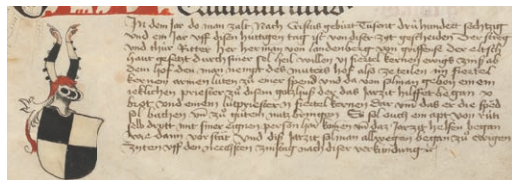 In dem Jar do man zalt Nach Cristus geburt Tusent drü hundert sechtzig
vnd ein Jar vff disen hüttigen tag ist von diser zyt gescheiden Der streng
vnd thür Ritter her herman von landenberg von griffense der etlich
haut gesatzt durch siner sel heil willen vj fiertel kernen ewigs zins ab
dem hof den man nempt des hof also ze teilen iiij fiertel
kernen armen lüten zu einer spend vnd da von sol man geben einem
jetlichen priester zu disem gotzhus der das Jarzit hilffet began j
brot vnd einem lütpriester j fiertel kernen dar vmb das er die spend
sol bachen vnd zu gutem nutz bringen Es sol ouch ein apt von rüti
selb mit siner eignen person har komen vnd das Jarzit helfen began
vnd dann vor stat Vnd diß Jarzit sol man allwegen began zu ewigen
ziten vff den nechsten zinstag nach diser verkündung